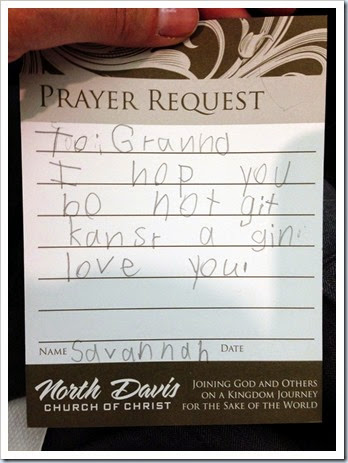 PRAYER REQUEST
To: Grannd
I hop you
bo not git
kansr a gin.
love you!
NAME Savannah DATE
North Davis
CHURCH OF CHRIST
JOINING GOD AND OTHERS
ON A KINGDOM JOURNEY
FOR THE SAKE OF THE WORLD